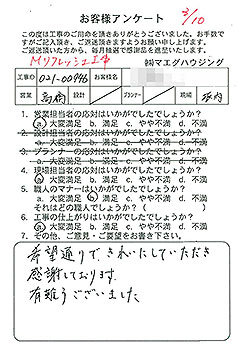 お客様アンケート
3/10
この度は工事のご用命を賜りありがとうございました。お手数で
すがご記入頂き、ご返送頂きますようお願い申し上げます。
ご返送頂いた方から、毎月抽選で感謝品を進呈いたします。
㈱マエダハウジング
工事ID 021-00946 お客様名
営業 高橋 設計 プランナー 現場
1. 営業担当者の応対はいかがでしたでしょうか?
a. 大満足 b. 満足 c. やや不満 d. 不満
2. 設計担当者の応対はいかがでしたでしょうか?
a. 大満足 b. 満足 c. やや不満 d. 不満
3. プランナーの応対はいかがでしたでしょうか?
a. 大満足 b. 満足 c. やや不満 d. 不満
4. 現場担当者の応対はいかがでしたでしょうか?
a. 大満足 b. 満足 c. やや不満 d. 不満
5. 職人のマナーはいかがでしたでしょうか?
a. 大満足 b. 満足 c. やや不満 d. 不満
それはどの職人でしょうか?( )
6. 工事の仕上がりはいかがでしたでしょうか?
a. 大満足 b. 満足 c. やや不満 d. 不満
7. その他、ご意見・ご要望をお書き下さい。
希望通りできれいにしていただき
感謝しております
有難うございました